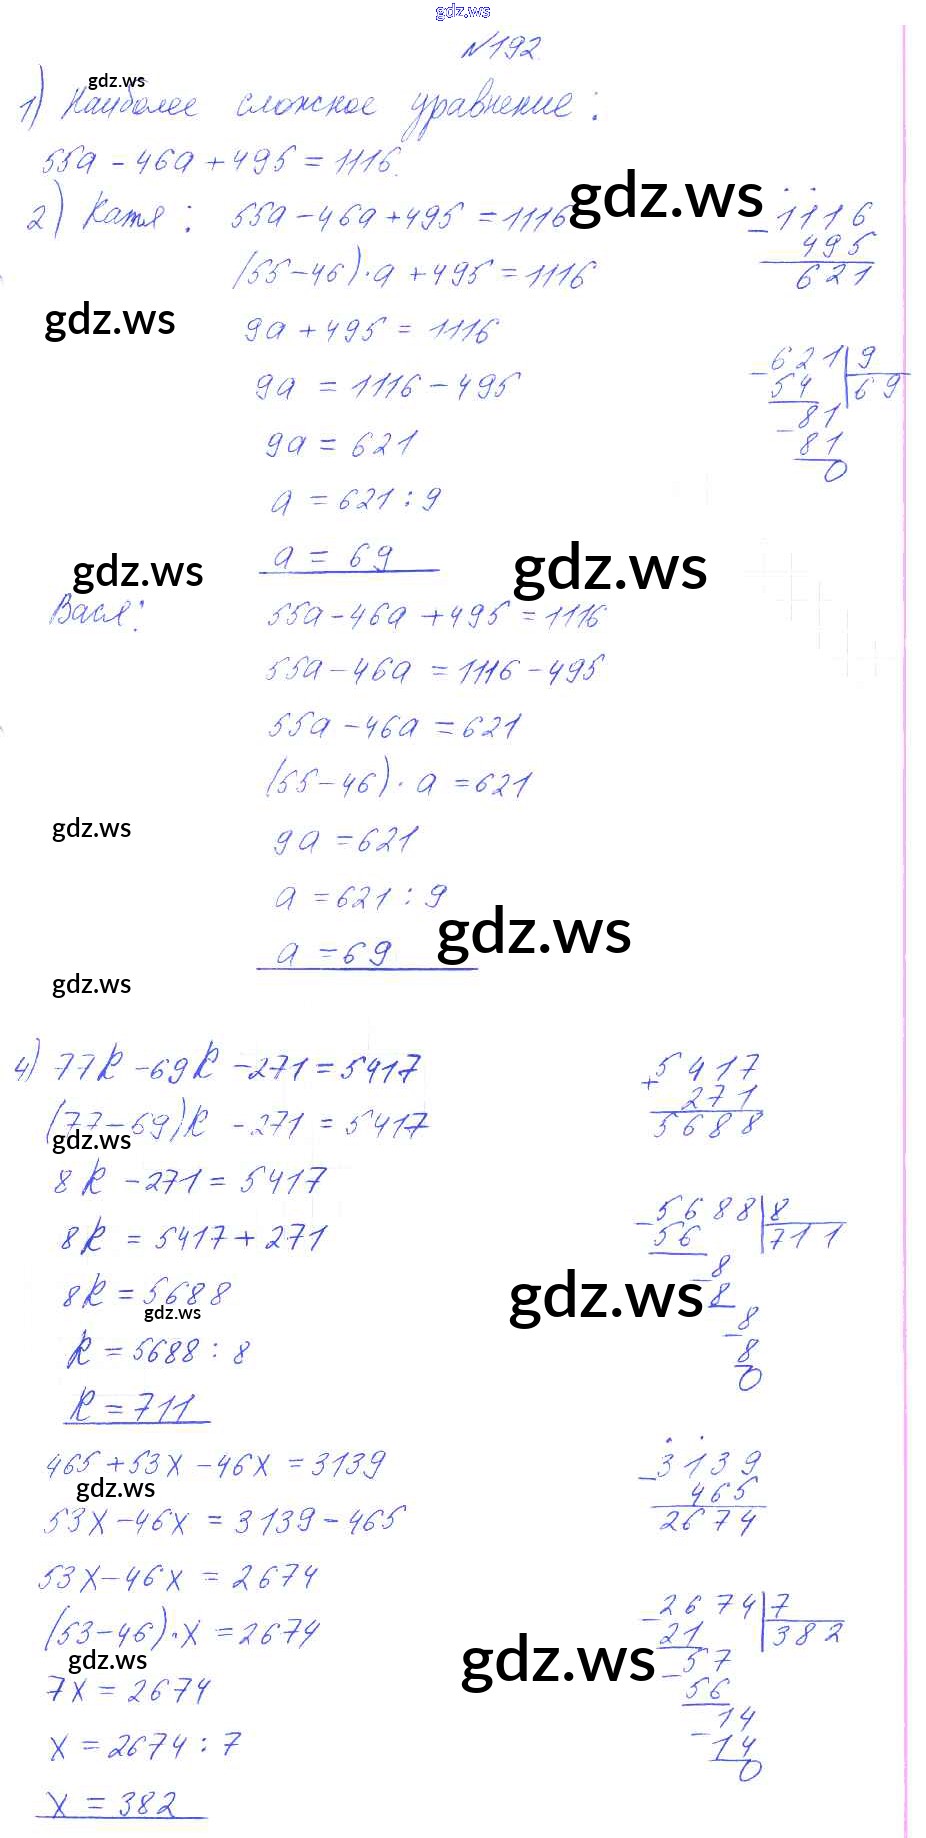 gdz.ws
№192.
gdz.ws
1) Наиболее сложное уравнение:
55a - 46a + 495 = 1116.
2) Катя: 55a - 46a + 495 = 1116
gdz.ws
(55-46)·a + 495 = 1116
gdz.ws
9a + 495 = 1116
9a = 1116 - 495
9a = 621
a = 621 : 9
a = 69
- 1116
495
621
- 621 | 9
54 | 69
- 81
81
0
gdz.ws
gdz.ws
Вася: 55a - 46a + 495 = 1116
55a - 46a = 1116 - 495
55a - 46a = 621
(55-46)·a = 621
gdz.ws
9a = 621
a = 621 : 9
gdz.ws
a = 69
gdz.ws
4) 77k - 69k - 271 = 5417
(77-69)k - 271 = 5417
gdz.ws
8k - 271 = 5417
8k = 5417 + 271
8k = 5688
gdz.ws
k = 5688 : 8
k = 711
+ 5417
271
5688
- 5688 | 8
56 | 711
- 8
8
- 8
8
0
gdz.ws
465 + 53x - 46x = 3139
gdz.ws
53x - 46x = 3139 - 465
53x - 46x = 2674
(53-46)·x = 2674
gdz.ws
7x = 2674
x = 2674 : 7
x = 382
- 3139
465
2674
- 2674 | 7
21 | 382
- 57
56
- 14
14
0
gdz.ws